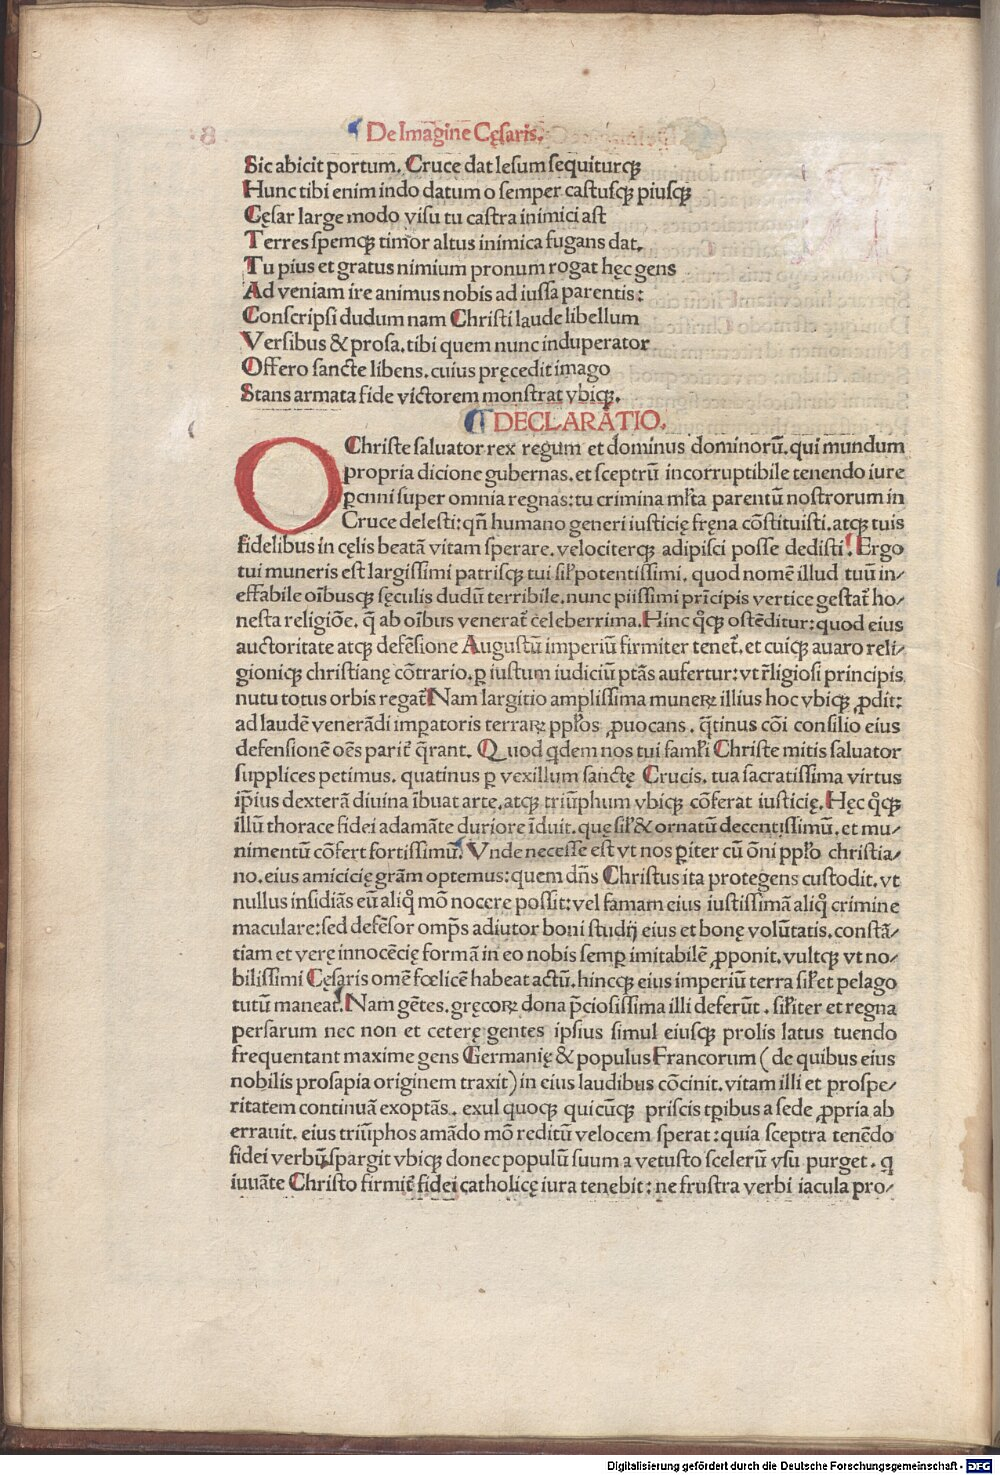 De Imagine Cęsaris.
Sic abicit portum. Cruce dat lesum sequiturqꝫ
Hunc tibi enim indo datum o semper castusqꝫ piusqꝫ
Cęsar large modo visu tu castra inimici ast
Terres spemqꝫ timor altus inimica fugans dat.
Tu pius et gratus nimium pronum rogat hęc gens
Ad veniam ire animus nobis ad iussa parentis:
Conscripsi dudum nam Christi laude libellum
Versibus & prosa. tibi quem nunc induperator
Offero sancte libens. cuius pręcedit imago
Stans armata fide victorem monstrat vbiqꝫ.
DECLARATIO.
O Christe saluator rex regum et dominus dominorū. qui mundum
propria dicione gubernas. et sceptrū incorruptibile tenendo iure
ꝑenni super omnia regnas: tu crimina ml̃ta parentū nostrorum in
Cruce delesti: qñ humano generi iusticię fręna cōstituisti. atqꝫ tuis
fidelibus in cęlis beatā vitam sperare. velociterqꝫ adipisci posse dedisti. Ergo
tui muneris est largissimi patrisqꝫ tui sil̃ potentissimi. quod nomē illud tuū in/
effabile oībusqꝫ sęculis dudū terribile. nunc piissimi prīcipis vertice gestat̃ ho/
nesta religiōe. q̄ ab oībus venerat̃ celeberrima. Hinc qͦqꝫ ostēditur: quod eius
auctoritate atqꝫ defēsione Augustū imperiū firmiter tenet̃. et cuiqꝫ auaro reli/
gioniqꝫ christianę cōtrario. ꝑ iustum iudiciū ptās aufertur: vt r̃ligiosi principis
nutu totus orbis regat̃ Nam largitio amplissima muneꝝ illius hoc vbiqꝫ ꝓdit:
ad laudē venerādi imꝑatoris terraꝝ ppl̃os ꝓuocans. q̄tinus cōi consilio eius
defensionē oēs parit̃ q̄rant. Quod qdem nos tui faml̃i Christe mitis saluator
supplices petimus. quatinus ꝑ vexillum sanctę Crucis. tua sacratissima virtus
ip̄ius dexterā diuina ībuat arte. atqꝫ triūphum vbiqꝫ cōferat iusticię. Hęc qͦqꝫ
illū thorace fidei adamāte duriore īduit. quę sil̃ & ornatū decentissimū. et mu/
nimentū cōfert fortissimū. Vnde necesse est vt nos ꝑiter cū ōni ppl̃o christia/
no. eius amicicię grām optemus: quem dñs Christus ita protegens custodit. vt
nullus insidiās eū aliqͦ mō nocere possit: vel famam eius iustissimā aliqͦ crimine
maculare: sed defēsor omp̄s adiutor boni studij eius et bonę volūtatis. constā/
tiam et verę innocēcię formā in eo nobis semꝑ imitabilē ꝓponit. vultqꝫ vt no/
bilissimi Cęsaris omē fœlicē habeat actū. hincqꝫ eius imperiū terra sil̃ et pelago
tutū maneat. Nam gētes. gręcoꝝ dona p̄ciosissima illi deferūt. sil̃iter et regna
persarum nec non et ceterę gentes ipsius simul eiusqꝫ prolis latus tuendo
frequentant maxime gens Germanię & populus Francorum (de quibus eius
nobilis prosapia originem traxit) in eius laudibus cōcinit. vitam illi et prospe/
ritatem continuā exoptās. exul quoqꝫ quicūqꝫ priscis tꝑibus a sede ꝓpria ab
errauit. eius triūphos amādo mō reditū velocem sperat: quia sceptra tenēdo
fidei verbū spargit vbiqꝫ donec populū suum a vetusto scelerū vsu purget. q
iuuāte Christo firmit̃ fidei catholicę iura tenebit: ne frustra verbi iacula pro/
Digitalisierung gefördert durch die Deutsche Forschungsgemeinschaft - DFG